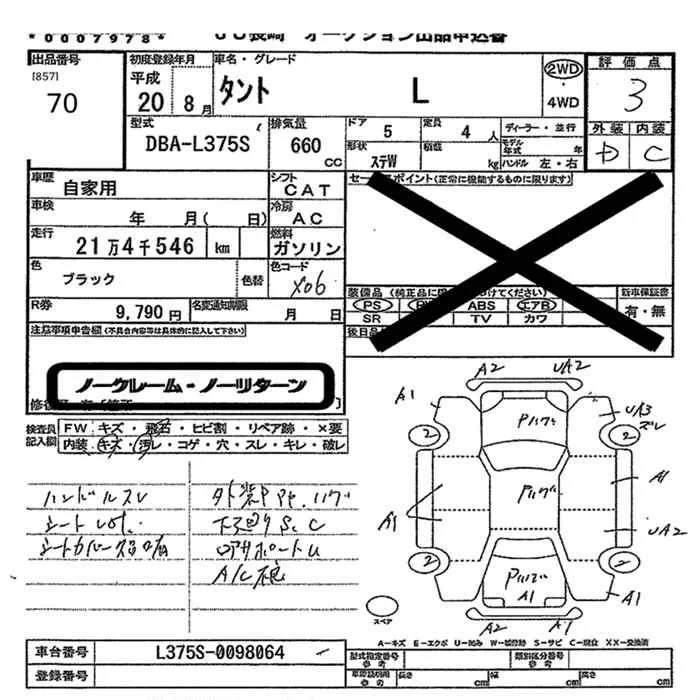 *0007978*
JU長崎 オークション出品申込書
出品番号
[857]
70
初度登録年月
平成
20 8月
車名・グレード
タント L
2WD
・
4WD
評価点
3
外装 内装
D C
型式
DBA-L375S
排気量
660
CC
ドア 5
定員 4人
ディーラー・並行
形状 ステW
積載 kg
モデル年式 年
ハンドル 左・右
車歴
自家用
シフト
CAT
セールスポイント(正常に機能するものに限ります)
車検
年 月( 日)
冷房
AC
走行
21万4千546 km
燃料
ガソリン
色
ブラック
色替
色コード
X06
装備品(純正品に限 つけてください)
PS ABS エアB
SR TV カワ
新車保証書
有・無
R券
9,790円
名変通知期限
月 日
後日品
注意事項申告欄(不具合内容等は具体的に記入して下さい)
ノークレーム・ノーリターン
検査員記入欄
FW キズ・飛石・ヒビ割・リペア跡・×要
内装 キズ・汚レ・コゲ・穴・スレ・キレ・破レ
ハンドルスレ
外装P
下廻りS.C
ロアサポートU
A2 UA2
A1 UA3
ズレ
2 2
A1 A1
UA2
2 2
A1 A1
A2 A1
スペア
A-キズ E-エクボ U-凹み W-補修跡 S-サビ C-腐食 XX-交換済
車台番号
L375S-0098064
登録番号
型式指定番号
参考
類別区分番号
参考
車検証明用
参考
長さ cm
幅 cm
高さ cm